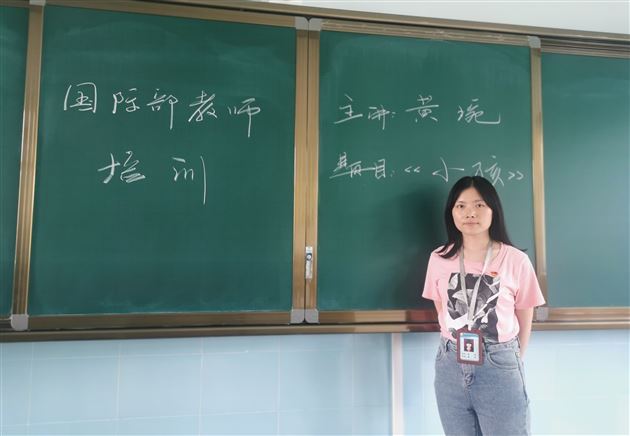 国际部教师
培训
主讲:黄琬
题目:《小孩》